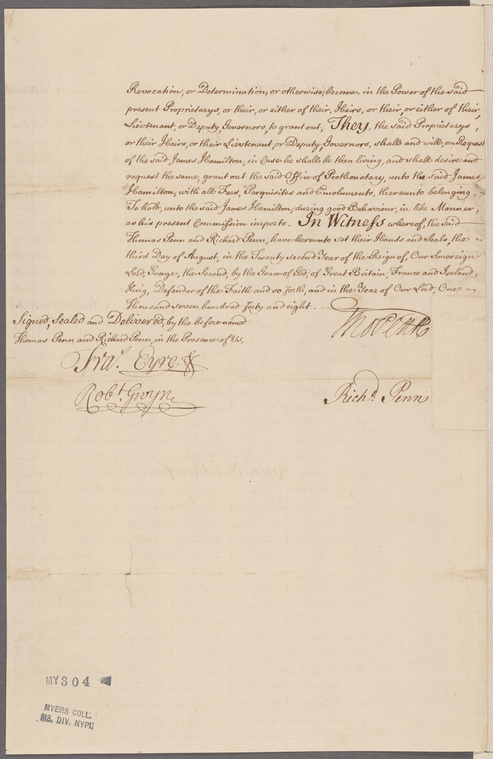 Revocation, or Determination, or otherwise, become, in the Power of the said
present Proprietarys, or their, or either of their, Heirs, or their, or either of their
Lieutenant, or Deputy Governors, to grant out, They, the said Proprietarys,
or their Heirs, or their Lieutenant, or Deputy, Governors, shall and will, on Request
of the said James Hamilton, in Case he shall be then living, and shall desire and
request the same, grant out the said Office of Prothonotary, unto the said James
Hamilton, with all Fees, Perquisites and Emoluments, thereunto belonging,
To hold, unto the said James Hamilton, during good Behaviour, in like Manner
as his present Commission imports. In Witness whereof, the said
Thomas Penn and Richard Penn, have hereunto set their Hands and Seals, the
third Day of August, in the Twenty second Year of the Reign of, Our Sovereign
Lord, George, the Second, by the Grace of God, of Great Britain, France and Ireland,
King, Defender of the Faith and so forth, and in the Year of Our Lord, One
Thousand seven hundred forty and eight.
Signed, Sealed and Deliver'd, by the beforenamed
Thomas Penn and Richard Penn, in the Presence of Us,
Tho Penn
Fra.s Eyre
Rob.t Gwyn
Rich.d Penn
MY304
MYERS COLL.
MS. DIV. NYPL